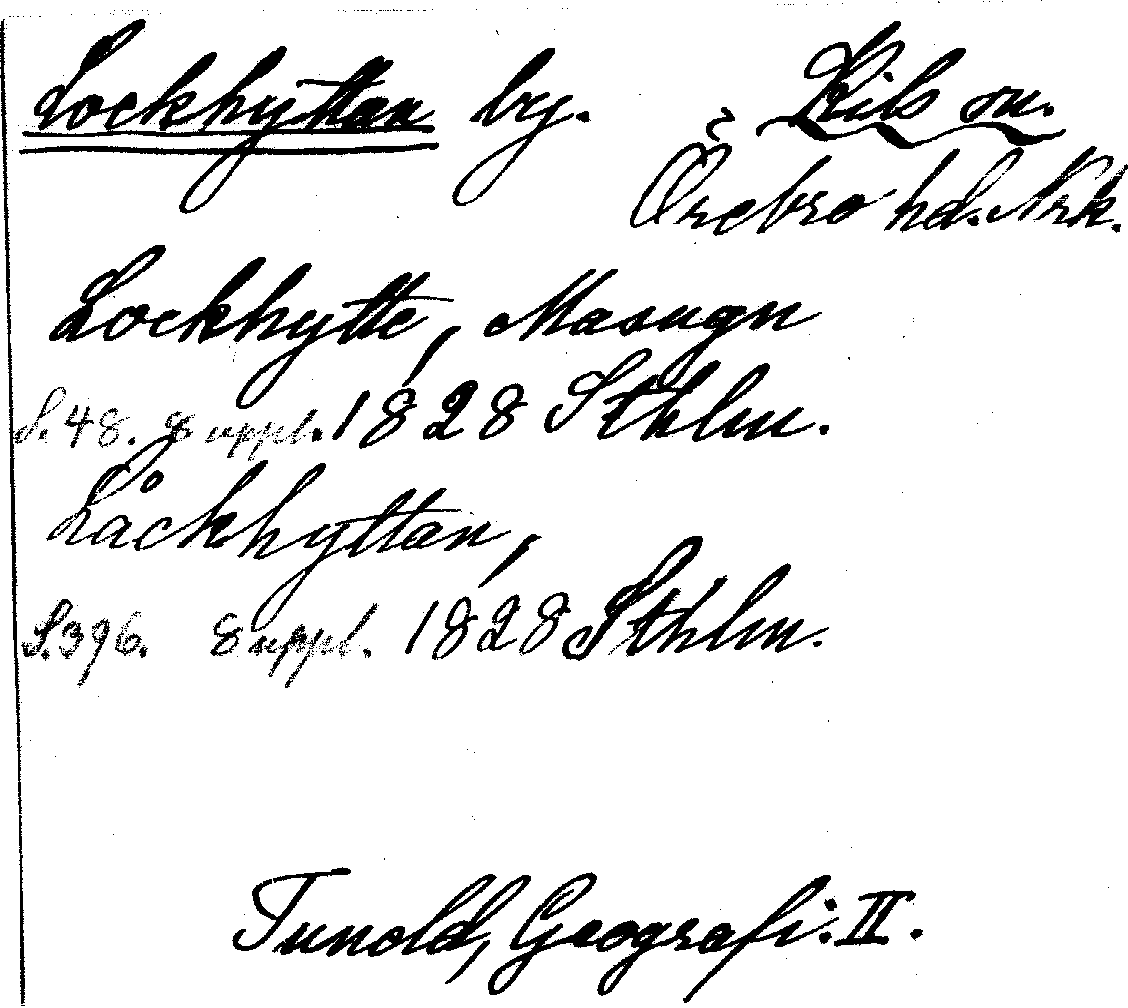 Lockhyttan by. Kils sn.
Örebro hd. Nrk.
Lockhytte, Masugn
S. 48. Suppl. 1828 Sthlm.
Låckhyttan,
S. 396. Suppl. 1828 Sthlm.
Tunold, Geografi. II.